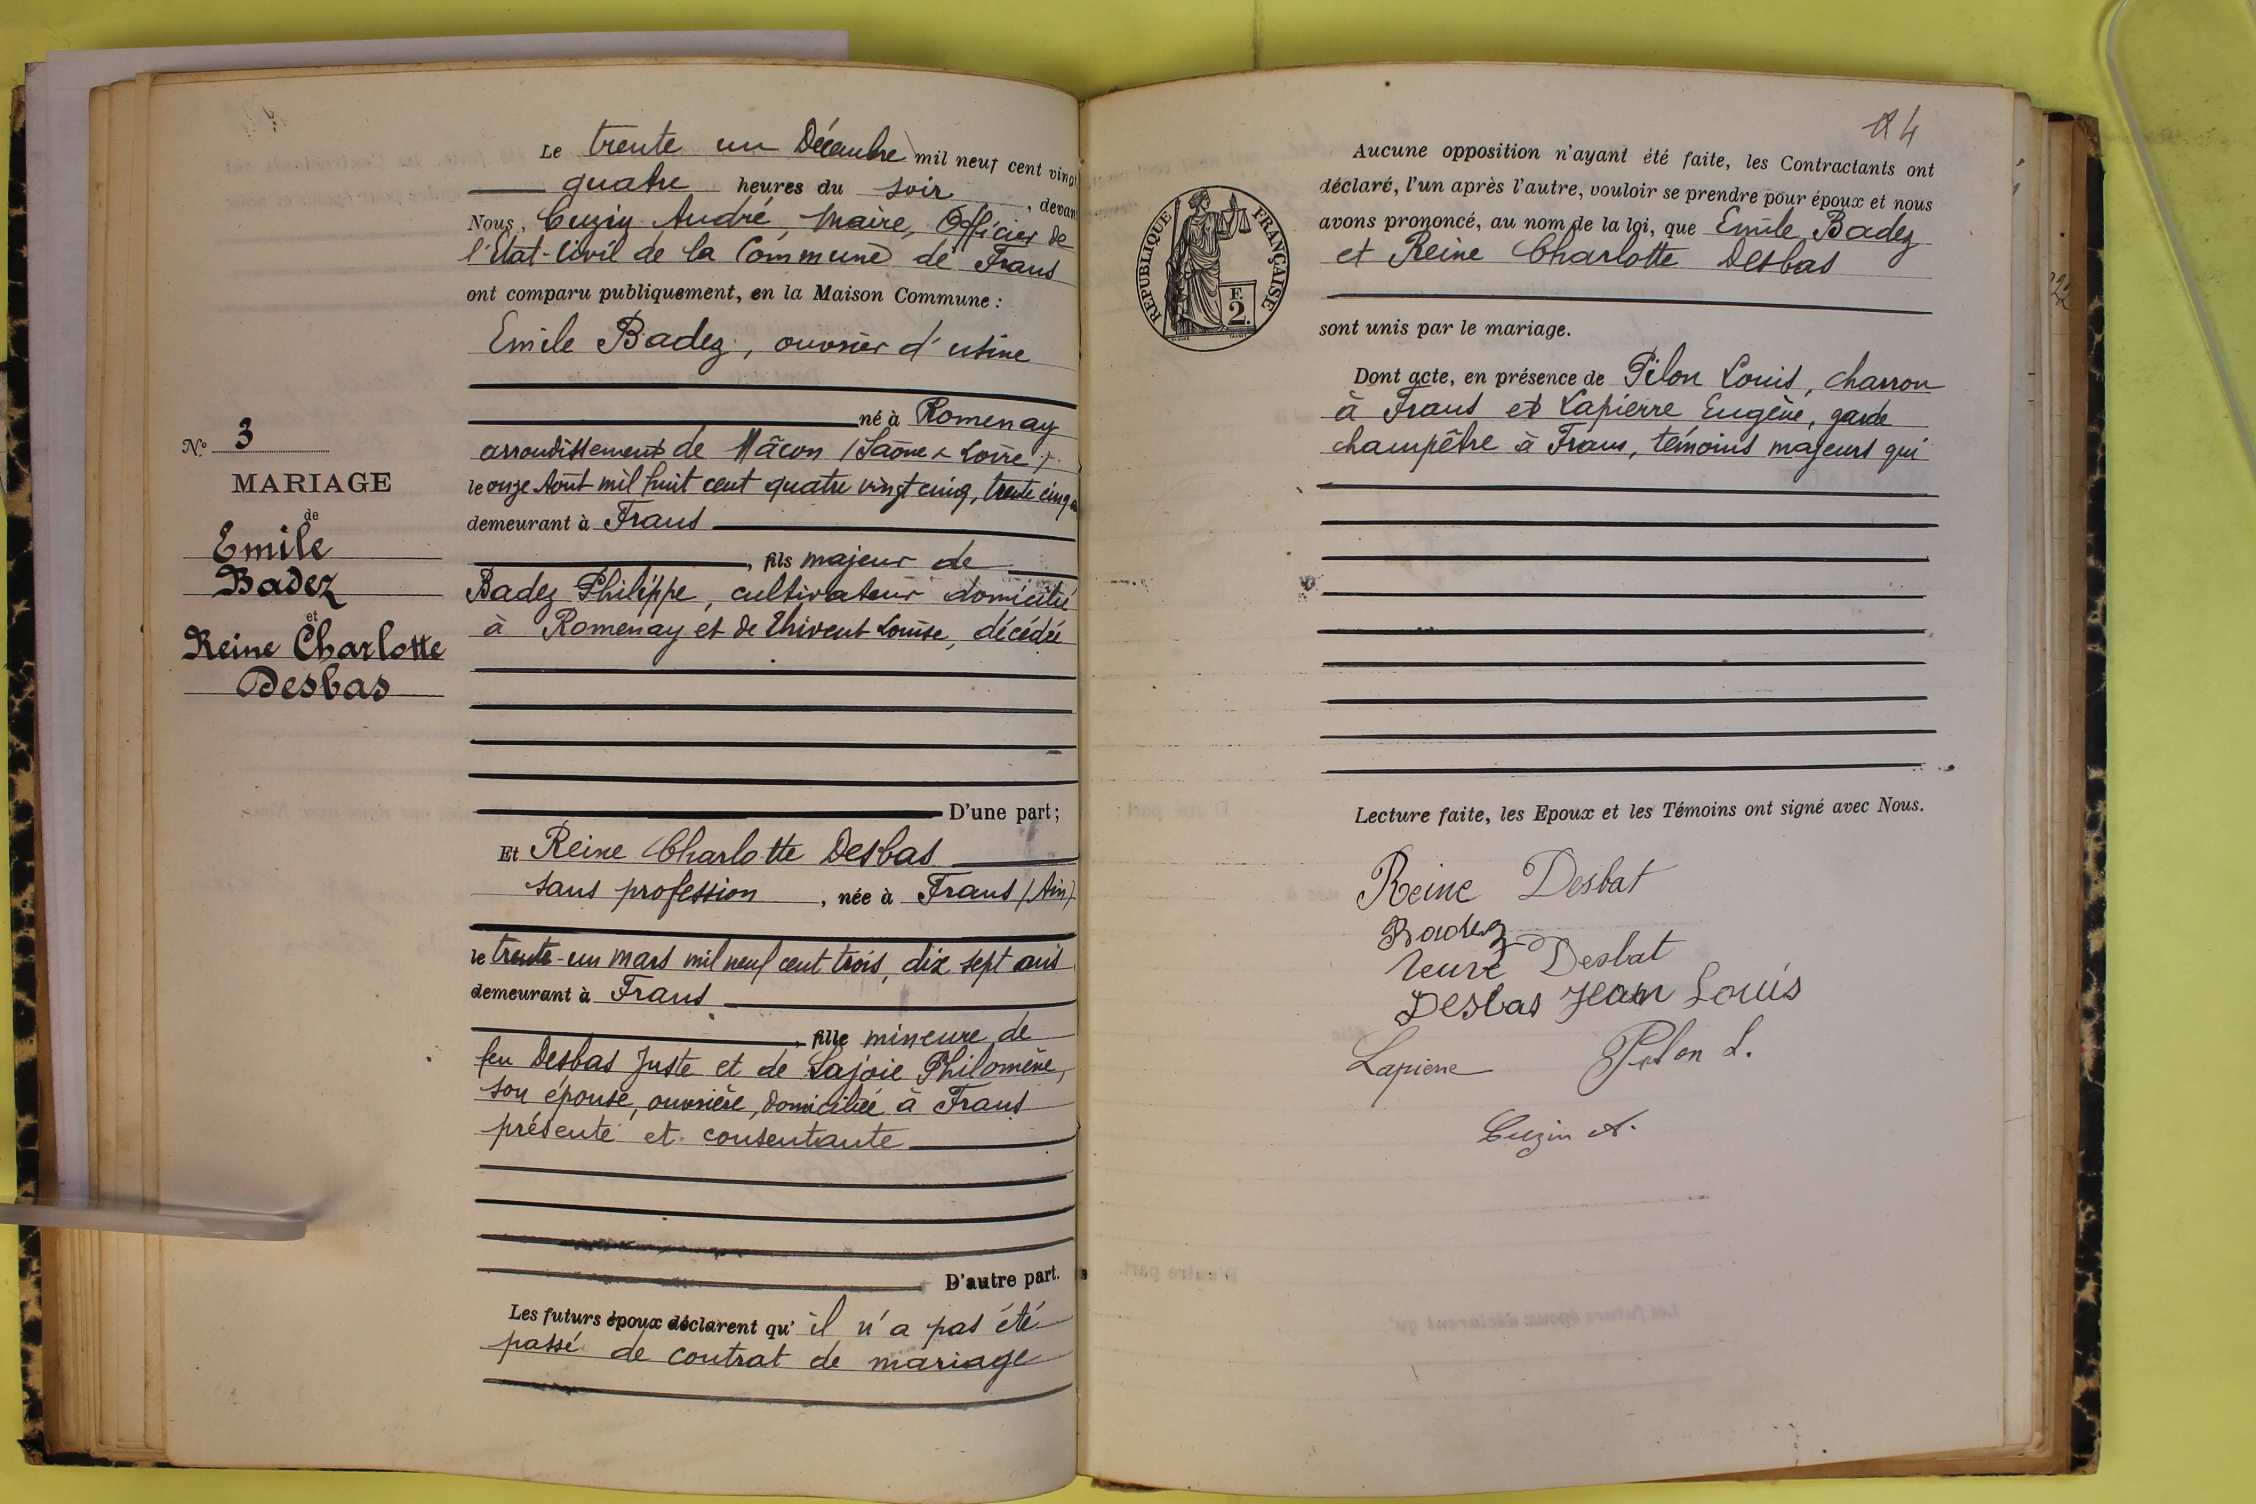 Le trente un Décembre mil neuf cent vingt
quatre heures du soir, devant
Nous, Cuzin André, Maire, Officier de
l'Etat-Civil de la Commune de Frans
ont comparu publiquement, en la Maison Commune :
Emile Badez, ouvrier d'usine
né à Romenay
arrondissement de Mâcon (Saône & Loire)
le onze Août mil huit cent quatre vingt cinq, trente cinq
demeurant à Frans
, fils majeur de
Badez Philippe, cultivateur domicilié
à Romenay et de Thivent Louise, décédée
D'une part;
Et Reine Charlotte Desbas
sans profession, née à Frans (Ain)
le trente-un mars mil neuf cent trois, dix sept ans
demeurant à Frans
, fille mineure de
feu Desbas Juste et de Lajoie Philomène,
son épouse, ouvrière, domiciliée à Frans
présente et consentante
D'autre part.
Les futurs époux déclarent qu'il n'a pas été
passé de contrat de mariage
N° 3
MARIAGE
de
Emile
Badez
et
Reine Charlotte
Desbas
4
Aucune opposition n'ayant été faite, les Contractants ont
déclaré, l'un après l'autre, vouloir se prendre pour époux et nous
avons prononcé, au nom de la loi, que Emile Badez
et Reine Charlotte Desbas
sont unis par le mariage.
Dont acte, en présence de Pilon Louis, charron
à Frans et Lapierre Eugène, garde
champêtre à Frans, témoins majeurs qui
Lecture faite, les Epoux et les Témoins ont signé avec Nous.
Reine Desbat
Badez
Veuve Desbat
Desbas Jean Louis
Lapierre Pilon L.
Cuzin A.
REPUBLIQUE FRANÇAISE
F.
2.